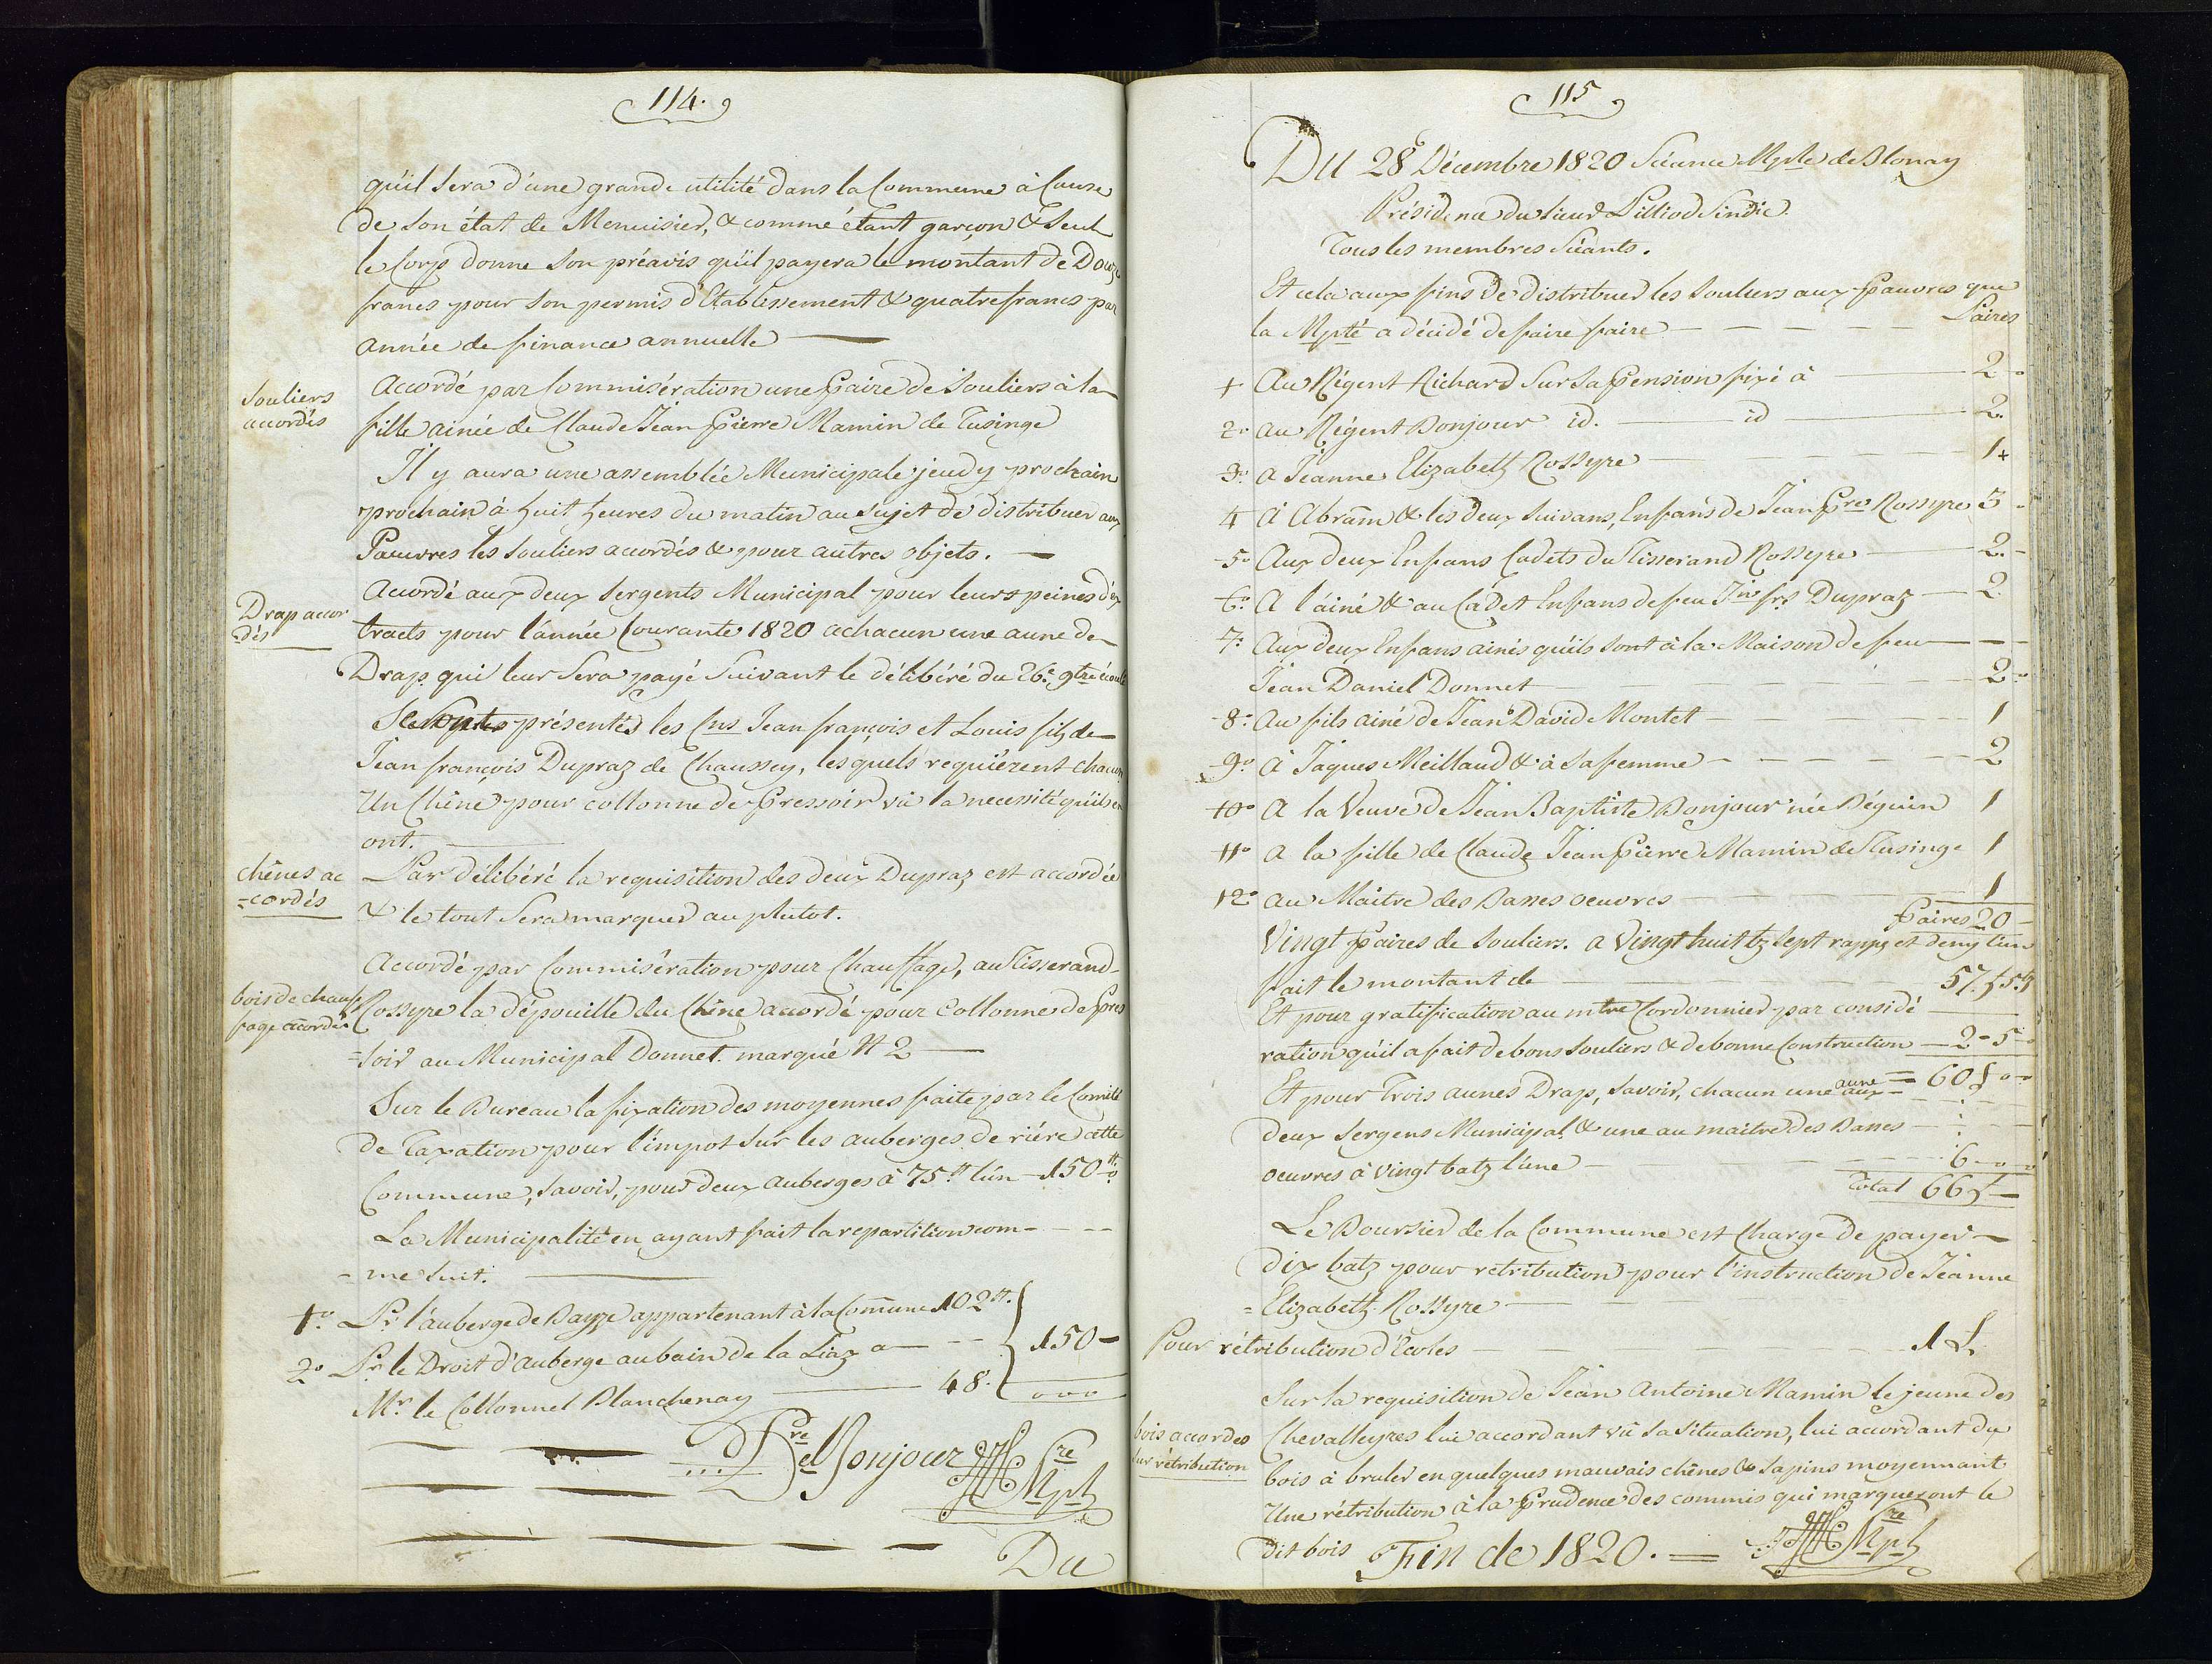 114.
qu'il sera d'une grande utilité dans la Commune à Cause
de son état de Menuisier, & comme étant garçon & seul
le Corps donne son préavis qu'il payera le montant de Douze
francs pour son permis d'Etablissement & quatre francs par
année de finance annuelle
Souliers
accordés
Accordé par Commisération une Paire de Souliers à la
fille ainée de Claude Jean Pierre Mamin de Tusinge
Il y aura une assemblée Municipale jeudy prochain
prochain à huit heures du matin au sujet de distribuer aux
Pauvres les Souliers accordés & pour autres objets.
Drap accor
dés
Accordé aux deux Sergents Municipal pour leurs peines d'ex
tracts pour l'année Courante 1820 a chacun une aune de
Drap qui leur sera payé suivant le délibéré du 26e 9bre écoulé
présentés les Cns Jean françois et Louis fils de
Jean françois Dupraz de Chaussey, lesquels requièrent chacun
Un Chêne pour collonne de Pressoir vû la necessité qu'ils en
ont.
chênes ac
=cordés
Par délibéré la requisition des deux Dupraz est accordée
& le tout sera marquer au plutot.
bois de chauf
fage accordé
Accordé par Commisération pour Chauffage, au Tisserand
Rossyre la dépouille du Chêne accordé pour Collonne de Pres
=soir au Municipal Donnet. marqué N 2
Sur le Bureau la fixation des moyennes faite par le Comité
de Taxation pour l'impot sur les auberges de rière cette
Commune, savoir, pour deux auberges à 75 ₶ l'un 150 ₶
La Municipalité en ayant fait la repartition com-
-me suit.
1º Pr l'auberge de Bayze appartenant à la Commune 102 ₶.
2º Pr le Droit d'auberge au bain de la Liaz a
150
Mr le Collonnel Blanchenay 48.
Bonjour
Sre
Mplt
Du
115
DU 28e Décembre 1820 Séance Mple de Blonay
Présidence du Sieur Pilliod Sindic.
Tous les membres Séants.
Et cela aux fins de distribuer les Souliers aux Pauvres que
la Mpté a décidé de faire faire Paires
1 Au Régent Richard Sur Sa Pension fixé à 2
2º au Régent Bonjour id. id 2.
3º a Jeanne Elizabeth Rossyre 1
4 à Abram & les deux suivans, Enfans de Jean Pre Rossyre 3
5º Aux deux Enfans Cadets du Tisserand Rossyre 2.
6º A l'ainé & au Cadet Enfans de feu Jn frs Dupraz 2
7º Aux deux Enfans ainés qu'ils sont à la Maison de feu
Jean Daniel Donnet 2
8º Au fils ainé de Jean David Montet 1
9º à Jaques Meillaud & à Sa femme 2
10º A la Veuve de Jean Baptiste Bonjour née Béguin 1
11º a la fille de Claude Jean Pierre Mamin de Tusinge 1
12º au Maitre des Basses oeuvres 1
Paires 20
Vingt Paires de Souliers. a Vingt huit bz Sept rapps et demy l'un
fait le montant de 57.
Et pour gratification au mtre Cordonnier par considé
ration qu'il a fait de bons Souliers & de bonne Construction 2-5
= 60
Et pour Trois aunes Drap, Savoir, chacun une aune aux
deux Sergens Municipal & une au maitre des Basses
oeuvres à vingt batz l'une 6
Total 66
Le Boursier de la Commune est Chargé de payer
dix batz pour rétribution pour l'instruction de Jeanne
=Elizabeth Rossyre
Pour rétribution d'Ecoles 1 L.
bois accordés
sur rétribution
Sur la requisition de Jean Antoine Mamin le jeune des
Chevalleyres lui accordant vû sa situation, lui accordant du
bois à bruler en quelques mauvais chênes & Sapins moyennant
Une rétribution à la Prudence des commis qui marqueront le
dit bois Fin de 1820.
Sre
Mplt